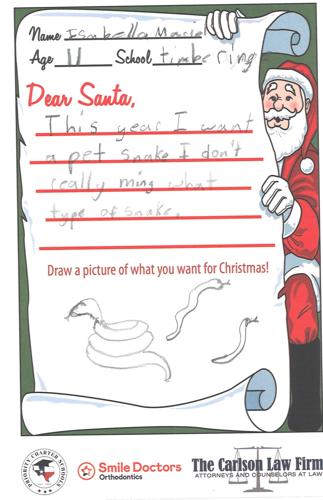 Name Isabella Macie
Age 11 School timbe ring
Dear Santa,
This year I want
a pet snake I don't
really ming what
type of snake.
Draw a picture of what you want for Christmas!
PRIORITY CHARTER SCHOOLS
Smile Doctors
Orthodontics
The Carlson Law Firm
ATTORNEYS AND COUNSELORS AT LAW